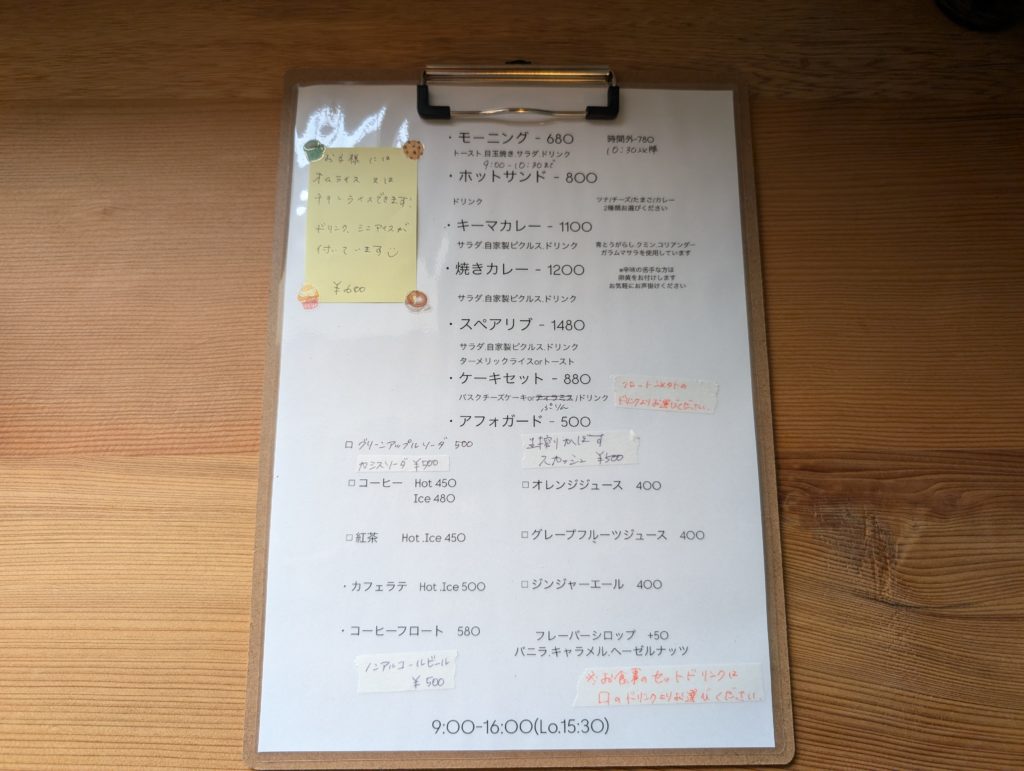 お子様には
オムライス又は
チキンライスできます!
ドリンク、ミニアイスが
付いています
¥600
・モーニング - 680 時間外-780
トースト.目玉焼き.サラダ.ドリンク 10:30以降
9:00-10:30まで
・ホットサンド - 800
ドリンク ツナ/チーズ/たまご/カレー
2種類お選びください
・キーマカレー - 1100
サラダ.自家製ピクルス.ドリンク 青とうがらし.クミン.コリアンダー
ガラムマサラを使用しています
・焼きカレー - 1200 ※辛味の苦手な方は
卵黄をお付けします
お気軽にお声掛けください
サラダ.自家製ピクルス.ドリンク
・スペアリブ - 1480
サラダ.自家製ピクルス.ドリンク
ターメリックライスorトースト
・ケーキセット - 880
バスクチーズケーキorティラミス/ドリンク
ぷりん
ドリンクよりお選びください。
・アフォガード - 500
□ グリーンアップルソーダ 500
カシスソーダ ¥500
生搾りかぼす
スカッシュ ¥500
□ コーヒー Hot 450
Ice 480
□ オレンジジュース 400
□ 紅茶 Hot .Ice 450
□ グレープフルーツジュース 400
・カフェラテ Hot .Ice 500
□ ジンジャーエール 400
・コーヒーフロート 580
フレーバーシロップ +50
バニラ.キャラメル.ヘーゼルナッツ
ノンアルコールビール
¥500
※お食事のセットドリンクは
□のドリンクよりお選びください。
9:00-16:00(Lo.15:30)